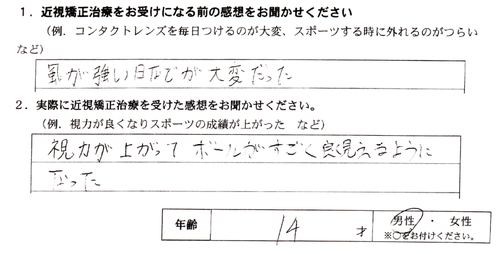 1．近視矯正治療をお受けになる前の感想をお聞かせください
（例．コンタクトレンズを毎日つけるのが大変、スポーツする時に外れるのがつらい
など）
風が強い日などが大変だった
2．実際に近視矯正治療を受けた感想をお聞かせください。
（例．視力が良くなりスポーツの成績が上がった　など）
視力が上がって ボールがすごく良く見えるように
なった
年齢 14 才 男性 ・ 女性
※○をお付けください。